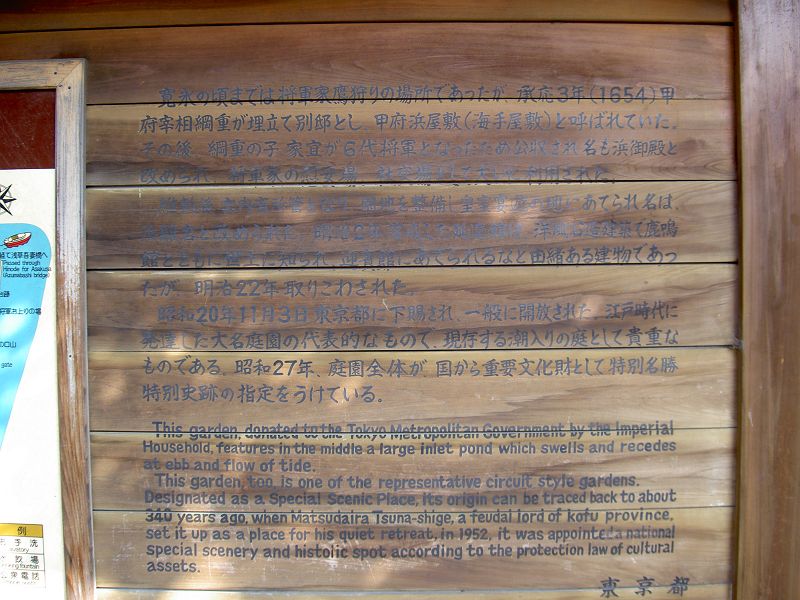 寛永の頃までは将軍家鷹狩りの場所であったが、承応3年(1654)甲
府宰相綱重が埋立て別邸とし、甲府浜屋敷(海手屋敷)と呼ばれていた。
その後、綱重の子 家宣が6代将軍となったため公収され名も浜御殿と
改められ、将軍家の
園地を整備し皇室宴遊の地にあてられ名は、
明治2年 洋風石造建築で鹿鳴
館とともに世上に知られ、迎賓館にあてられるなど由緒ある建物であっ
たが、明治22年取りこわされた。
昭和20年11月3日東京都に下賜され、一般に開放された。江戸時代に
発達した大名庭園の代表的なもので、現存する潮入りの庭として貴重な
ものである。昭和27年、庭園全体が、国から重要文化財として特別名勝
特別史跡の指定をうけている。
This garden, donated to the Tokyo Metropolitan Government by the Imperial
Household, features in the middle a large inlet pond which swells and recedes
at ebb and flow of tide.
This garden, too, is one of the representative circuit style gardens.
Designated as a Special Scenic Place, its origin can be traced back to about
340 years ago, when Matsudaira Tsuna-shige, a feudal lord of kofu province,
set it up as a place for his quiet retreat, in 1952, it was appointed a national
special scenery and histolic spot according to the protection law of cultural
assets.
東京都
経て浅草吾妻橋へ
Passed through
Hinode for Asakusa
(Azumabashi bridge)
将軍お上りの場
の口山
gate
例
お手洗
電話